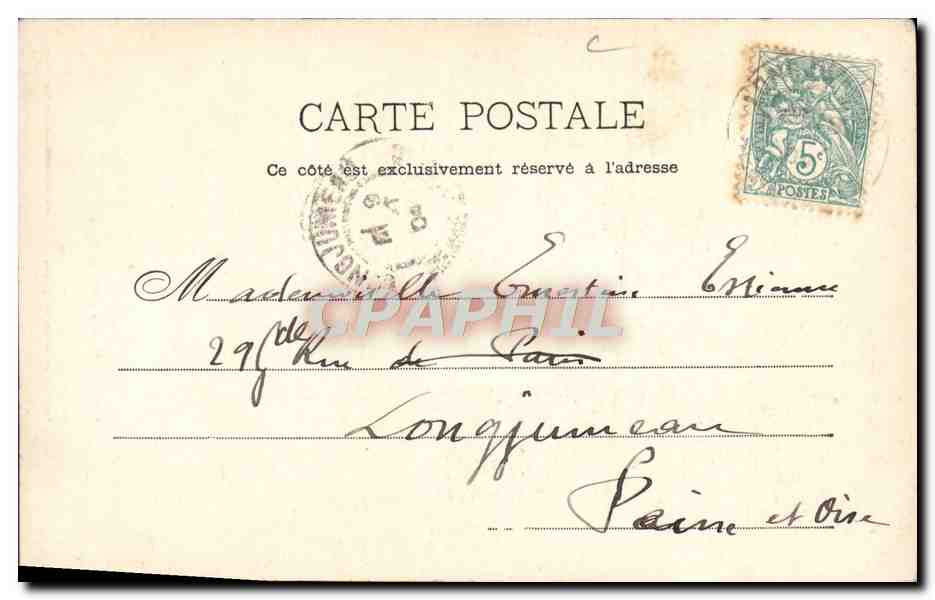 CARTE POSTALE
5c
POSTES
Ce côté est exclusivement réservé à l'adresse
LONGJUMEAU
Mademoiselle Ernestine Etienne
CPAPHIL
29 Gde Rue de Paris
Longjumeau
Seine et Oise